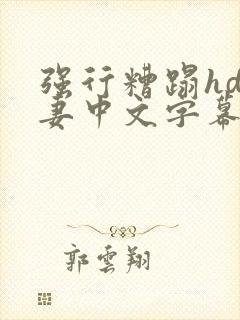 强行糟蹋hd
妻中文字幕
郭雲翔